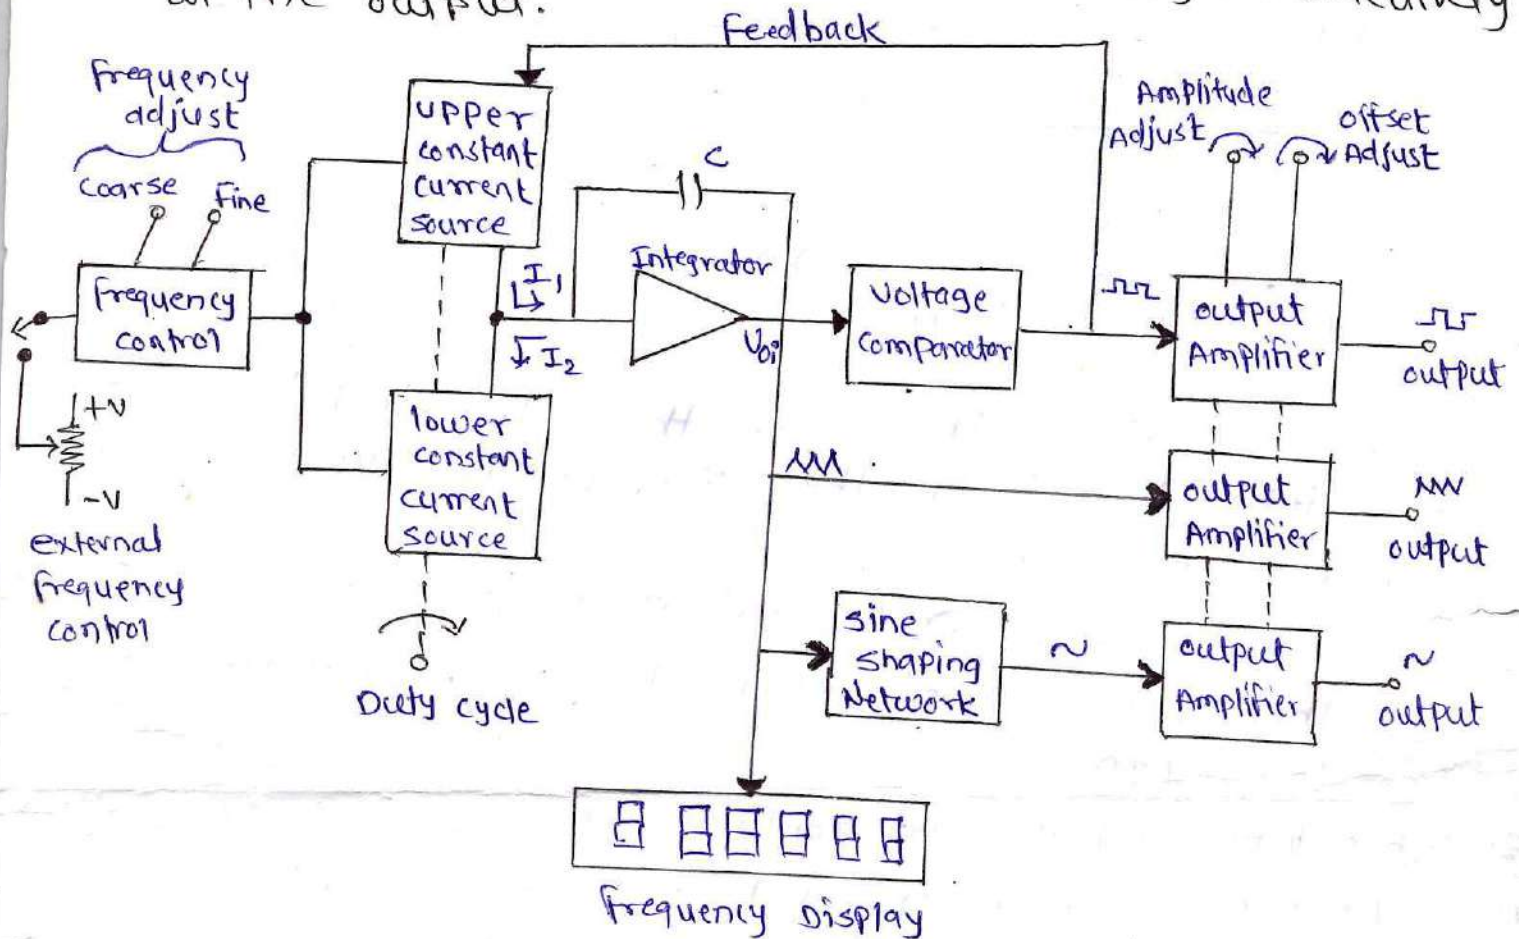 at the output.
Feedback
frequency
adjust
Coarse
Fine
frequency
control
+V
-V
external
frequency
control
upper
constant
current
source
I1
I2
lower
constant
current
source
Duty cycle
C
Integrator
Voi
Voltage
comparator
Amplitude
Adjust
offset
Adjust
output
Amplifier
output
output
Amplifier
output
sine
shaping
Network
output
Amplifier
output
8 8 8 8 8 8
frequency Display